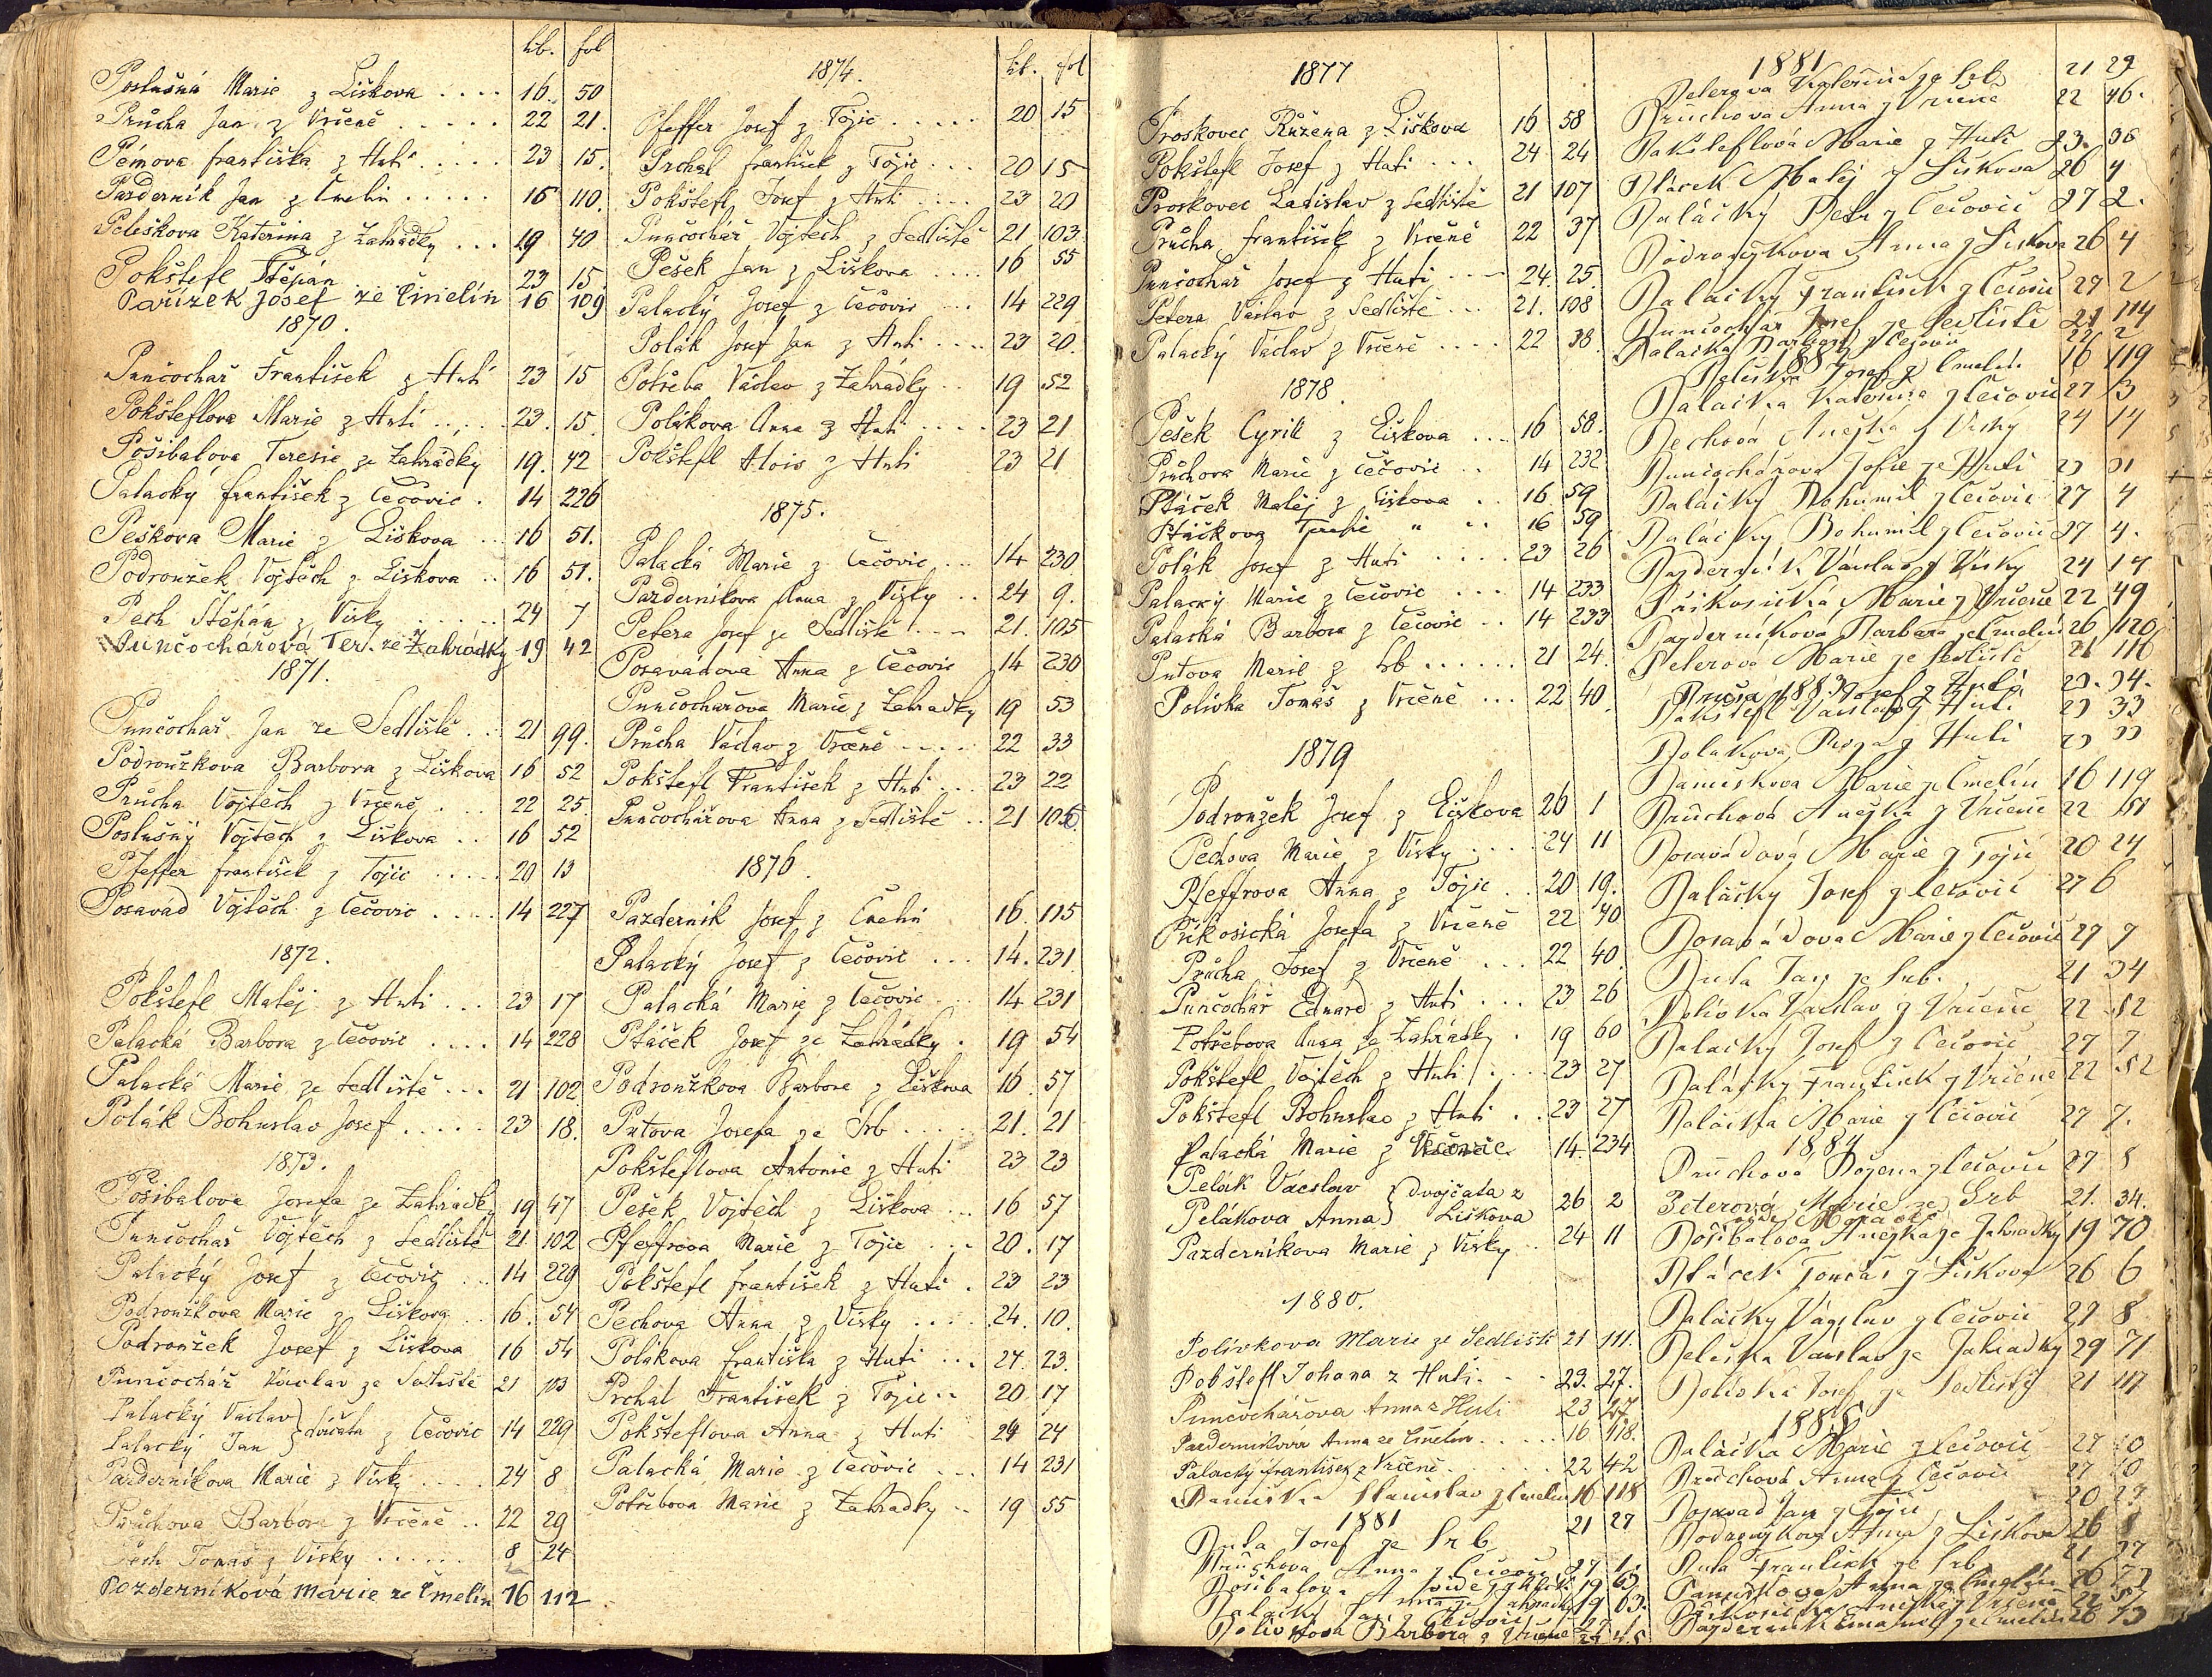 lib. fol
Poslušná Marie z Liškova . . . . 16. 50
Průcha Jan z Vrčeně . . . . . 22 21.
Pémova františka z Huti . . . . . 23 15.
Pazderník Jan z Čmelin . . . . . 16 110.
Peleškova Kateřina z Zahrádky . . . 19 40
Pokštefl Štěpán 23 15.
Pařízek Josef ze Čmelín 16 109
1870.
Punčochař František z Huti 23 15
Pokšteflova Marie z Huti . . . . . 23. 15.
Pošibalova Teresie ze Zahrádky 19. 42
Palacký František z Čečovic . 14 226
Peškova Marie z Liškova . . 16 51.
Podroužek Vojtěch z Liškova . . 16 51.
Pech Štěpán z Vísky . . . . . 24 7
Punčochářová Ter. ze Zahrádky 19 42
1871.
Punčochař Jan ze Sedliště . . 21 99.
Podroužkova Barbora z Liškova 16 52
Průcha Vojtěch z Vrčeně . . . 22 25.
Poslušný Vojtěch z Liškova . . 16 52
Pfeffer františek z Tojic . . . . . 20 13
Posavád Vojtěch z Čečovic . . . . 14 227
1872.
Pokštefl Matěj z Huti . . . 23 17
Palacká Barbora z Čečovic . . . . 14 228
Palacká Marie ze Sedliště . . . 21 102
Polák Bohuslav Josef . . . . . 23 18.
1873.
Pošibalova Josefa ze Zahrádky 19 47
Punčochař Vojtěch z Sedliště 21 102
Palacký Josef z Čečovic . . . 14 229
Podroužkova Marie z Liškova . . 16. 54
Podroužek Josef z Liškova 16 54
Punčochář Václav ze Sedliště 21 103
Palacký Václav
Palacký Jan } dvojčata z Čečovic 14 229
Pazderníkova Marie z Vísky . . . 24 8
Průchova Barbora z Vrčeně . . 22 29
Pech Tomáš z Vísky . . . . . . 8 24
Pazderníková Marie ze Čmelín 16 112
lib. fol
1874.
Pfeffer Josef z Tojic . . . . . 20 15
Prchal František z Tojic . . . 20 15
Pokštefl Josef z Huti . . . . 23 20
Punčochář Vojtěch z Sedliště 21 103
Pešek Jan z Liškova . . . . 16 55
Palacký Josef z Čečovic . . . 14 229
Polák Josef Jan z Huti . . . . 23 20.
Potřeba Václav z Zahrádky . . 19 52
Polákova Anna z Huti . . . . 23 21
Pokštefl Alois z Huti 23 21
1875.
Palacká Marie z Čečovic . . . 14 230
Pazderníkova Anna z Vísky . . 24 9.
Petera Josef ze Sedliště . . . 21. 105
Posavadova Anna z Čečovic 14 230
Punčochařova Marie z Zahradky 19 53
Průcha Václav z Vrčeně . . . . 22 33
Pokštefl František z Huti . . . 23 22
Punčochářova Anna z Sedliště . . 21 106
1876.
Pazderník Josef z Čmelin 16. 115
Palacký Josef z Čečovic . . . 14. 231
Palacká Marie z Čečovic . . 14 231
Ptáček Josef ze Zahrádky . 19 54
Podroužkova Barbora z Liškova 16. 57
Putova Josefa ze Srb . . . . 21. 21
Pokšteflova Antonie z Huti 23 23
Pešek Vojtěch z Liškova . . . 16 57
Pfeffrova Marie z Tojic . . . 20. 17
Pokštefl františek z Huti . 23 23
Pechova Anna z Vísky . . . . 24. 10.
Polákova františka z Huti . . . 27. 23.
Prchal František z Tojic . . 20. 17
Pokšteflova Anna z Huti 24 24
Palacká Marie z Čečovic . . . 14 231
Potřebova Marie z Zahradky . . 19 55
1877
Proskovec Růžena z Liškova 16 58
Pokštefl Josef z Huti . . . 24 24
Proskovec Ladislav z Sedliště 21 107
Průcha františek z Vrčeně 22 37
Punčochař Josef z Huti . . . 24. 25.
Petera Václav z Sedliště . . . 21. 108
Palacký Václav z Vrčeně . . . . 22 38.
1878.
Pešek Cyrill z Liškova . . . 16 58.
Průchova Marie z Čečovic . . 14 232
Ptáček Matěj z Liškova . . 16 59
Ptáčkova Teresie " . . 16 59.
Polák Josef z Huti . . . . 23 26
Palacký Marie z Čečovic . . . 14 233
Palacká Barbora z Čečovic . . 14 233
Putova Marie z Srb . . . . . . 21 24.
Polívka Tomáš z Vrčeně . . . 22 40.
1879
Podroužek Josef z Liškova 26 1
Pechova Marie z Vísky . . . . 24 11
Pfeffrova Anna z Tojic . . 20 19.
Příkosická Josefa z Vrčeně 22 40
Průcha Josef z Vrčeně . . . 22 40.
Punčochář Eduard z Huti . . . 23 26
Potřebova Anna ze Zahrádky . 19 60
Pokštefl Vojtěch z Huti . . . 23 27
Pokštefl Bohuslav z Huti . . 23 27
Palacká Marie z Čečovic 14. 234
Pelák Václav } dvojčata z
Pelákova Anna } Liškova 26 2
Pazderníkova Marie z Vísky . . 24 11
1880.
Polívkova Marie ze Sedliště 21 111.
Pokštefl Johana z Huti . . . 23. 27.
Punčochářova Anna z Huti 23 27
Pazderníkova Anna ze Čmelín . . . . . 16 118.
Palacký františek z Vrčeně . . . . . . 22 42
Paniška Stanislav z Čmelín 16 118
1881
Puta Josef ze Srb 21 27
Průchova Anna z Čečovic 27 1.
Polívkova Barbora z Vrčeně
1881
Peterova Kateřina ze Srb 21 29
Průchova Anna z Vrčeně 22 46.
Pakšteflová Marie z Huti 23. 30
Ptáček Matěj z Liškova 26 4
Palácký Petr z Čečovic 27 2.
Podroužkova Anna z Liškova 26 4
Palácký František z Čečovic 27 2
Punčochář Josef ze Sedliště 21 114
Palacká Barbora z Čečovic
1882
Josef z Čmelín 16 119
Palacká Kateřina z Čečovic 27 3
Pechová Anežka z Vísky 24 14
Punčochářova Žofie ze Huti 23 31
Palácký Bohumil z Čečovic 27 4
Palácký Bohumil z Čečovic 27 4.
Pazderník Václav z Vísky 24 14
Příkosická Marie z Vrčeně 22 49
Pazderníková Barbara z Čmelín 26 120
Peterová Marie ze Sedliště 21 116
1883
Josef z Huti 23. 34.
Pakštefl Václav z Huti 23 33
Polákova Rosa z Huti 23 33
Paniškova Marie z Čmelín 16 119
Průchová Anežka z Vrčeně 22 51
Posavádová Marie z Tojic 20 24
Palácký Josef z Čečovic 27 6
Posavádova Marie z Čečovic 27 7
Puta Jan ze Srb. 21 34
Polívka Václav z Vrčeně 22 52
Palacký Josef z Čečovic 27 7
Palácký František z Vrčeně 22 52
Palácká Marie z Čečovic 27 7.
1884
Průchová Božena z Čečovic 27 8
Peterová Marie ze Srb 21. 34.
Pošibalova Anežka ze Zahradky 19 70
Ptáček Tomáš z Liškova 26 6
Palácký Václav z Čečovic 27 8
Peleška Václav ze Zahradky 29 71
Polívka Josef ze Sedliště 21 117
1885
Palácká Marie z Čečovic 27 10
Průchová Anna z Čečovic 27 10
Posavad Jan z Tojic 20 27
Podroužkova Anna z Liškova 26 8
Puta František ze Srb 21 37
Panuškova Anna ze Čmelín
Příkosická Anežka z Vrčeně
Pazderník Emanuel z Čmelín